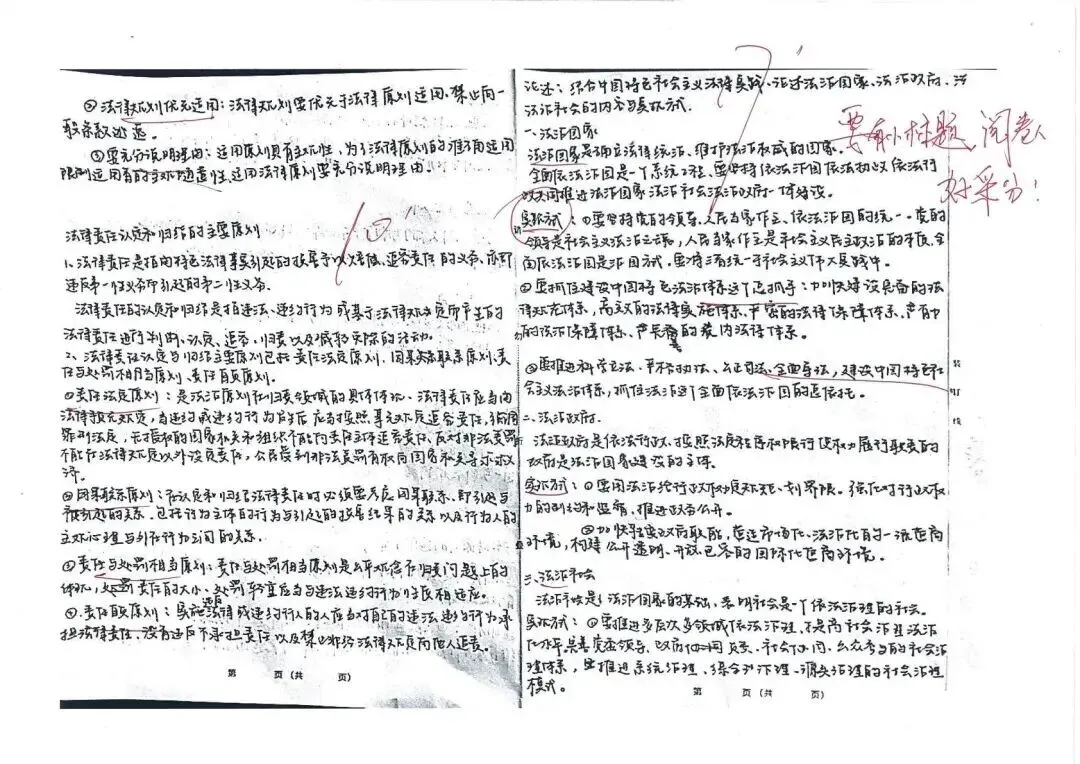 ②法律规则优先适用：法律规则要优先于法律原则适用，禁止向一
般条款逃逸。
③要充分说明理由：适用原则具有主观性，为了法律原则的准确适用
限制适用者的主观随意性，适用法律原则要充分说明理由。
法律责任认定和归结的主要原则
1、法律责任是指由特定法律事实引起的损害予以赔偿、
违反第一性义务所引起的第二性义务。
法律责任的认定和归结是指违法、违约行为或基于法律规定而产生的
法律责任进行判断、认定、追究、归结以及减轻免除的活动。
二、法律责任认定与归结主要原则包括责任法定原则、因果联系原则、责
任与处罚相当原则、责任自负原则。
①责任法定原则：是法治原则在归责领域的具体体现。法律责任应当由
法律预先规定，当违约或违约行为发生后应当按照事先规定追究责任，
罪刑法定，无授权的国家机关和组织不能向责任主体追究责任，反对非法责罚
不能在法律规定以外设定责任，公民受到非法责罚有权向国家机关寻求救
济。
②因果联系原则：在认定和归结法律责任时必须要考虑因果联系，即引起与
被引起的关系。包括行为主体的行为与引起的损害结果的关系以及行为人的
主观心理与外在行为之间的关系。
③责任与处罚相当原则：责任与处罚相当原则是公平观念在归责问题上的
体现，处罚责任的大小、处罚轻重应当与违法违约行为性质相适应。
④责任自负原则：实施违反法律或违约行人的人应当对自己的违法违约行为承
担法律责任，没有违反不承担责任以及禁止非经法律规定向他人追责。
第 页（共 页）
7'
10'
论述：结合中国特色社会主义法律实践，论述法治国家、法治政府、法
治社会的内容与实现方式。
要有小标题 阅卷人
好采分！
一、法治国家
法治国家是确立法律统治、维护法治权威的国家。
全面依法治国是一个系统工程，要坚持依法治国依法执政依法行
政共同推进法治国家法治社会法治政府一体建设。
实现方式：①要坚持党的领导、人民当家作主、依法治国的统一。党的
领导是社会主义法治之魂，人民当家作主是社会主义民主政治的本质，全
面依法治国是治国方式。要将三者统一于社会主义伟大实践中。
②要抓住建设中国特色法治体系这个总抓手：加快建设完备的法
律规范体系，高效的法律实施体系、严密的法律保障体系、严有力
的法治保障体系、严完善的党内法律体系。
③要推进科学立法、严格执法、公正司法、全面守法，建设中国特色社
会主义法治体系，抓住法治这个全面依法治国的总依托。
二、法治政府。
法治政府是依法行政、按照法定程序和限行使权力履行职责的
政府是法治国家建设的主体。
实现方式：①要用法治给行政权力定规矩、划界限。强化对行政权
力的制约和监督，推进政务公开。
②加快转变政府职能，营造市场化、法治化的一流营商
环境，构建公开透明、开放包容的国际化营商环境。
三、法治社会
法治社会是法治国家的基础，表明社会是一个依法治理的社会。
实现方式：①要推进多层次多领域依法治理，提高社会治理法治
化水平，完善党委领导、政府协同负责、社会协同、公众参与的社会治
理体系，要推进系统治理、综合治理、源头治理的社会治理
模式。
第 页（共 页）
装
订
线